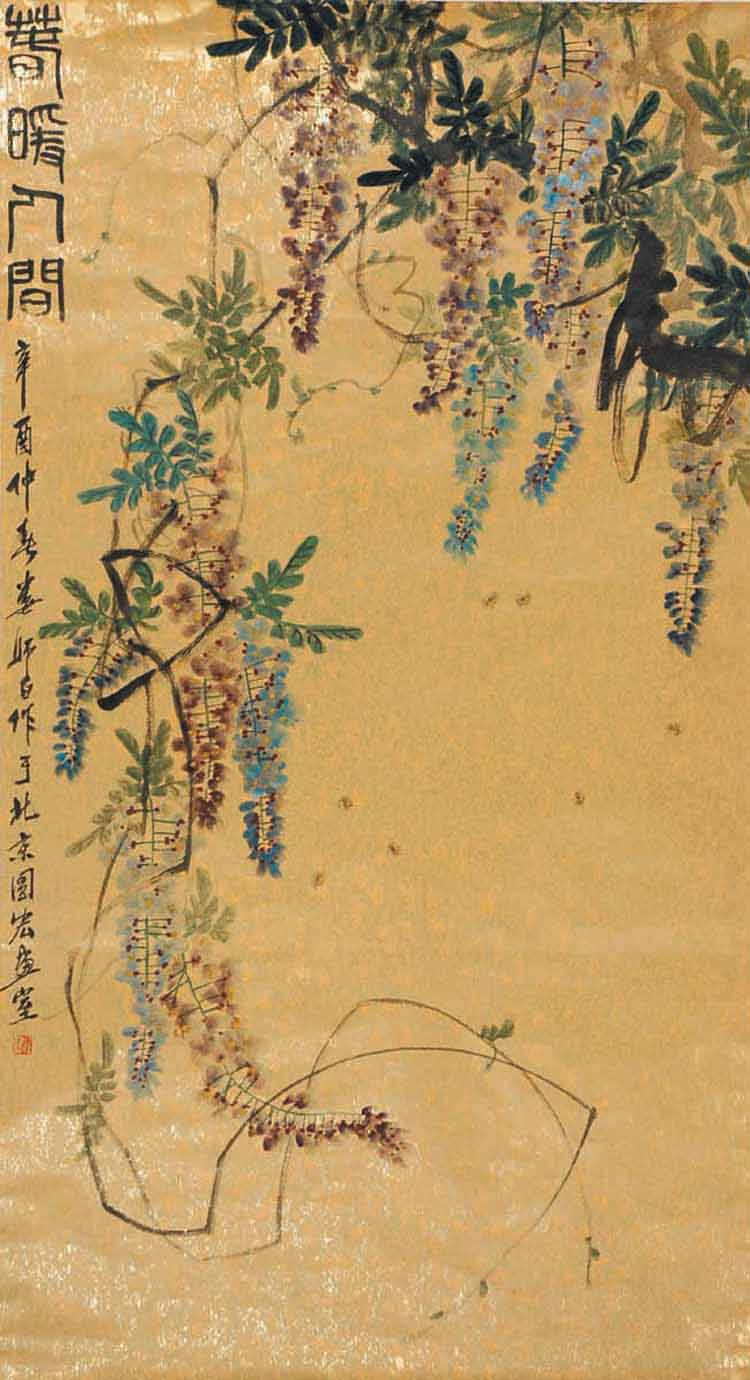 春暖人間
辛酉仲春婁師白作于北京圆宏畫室